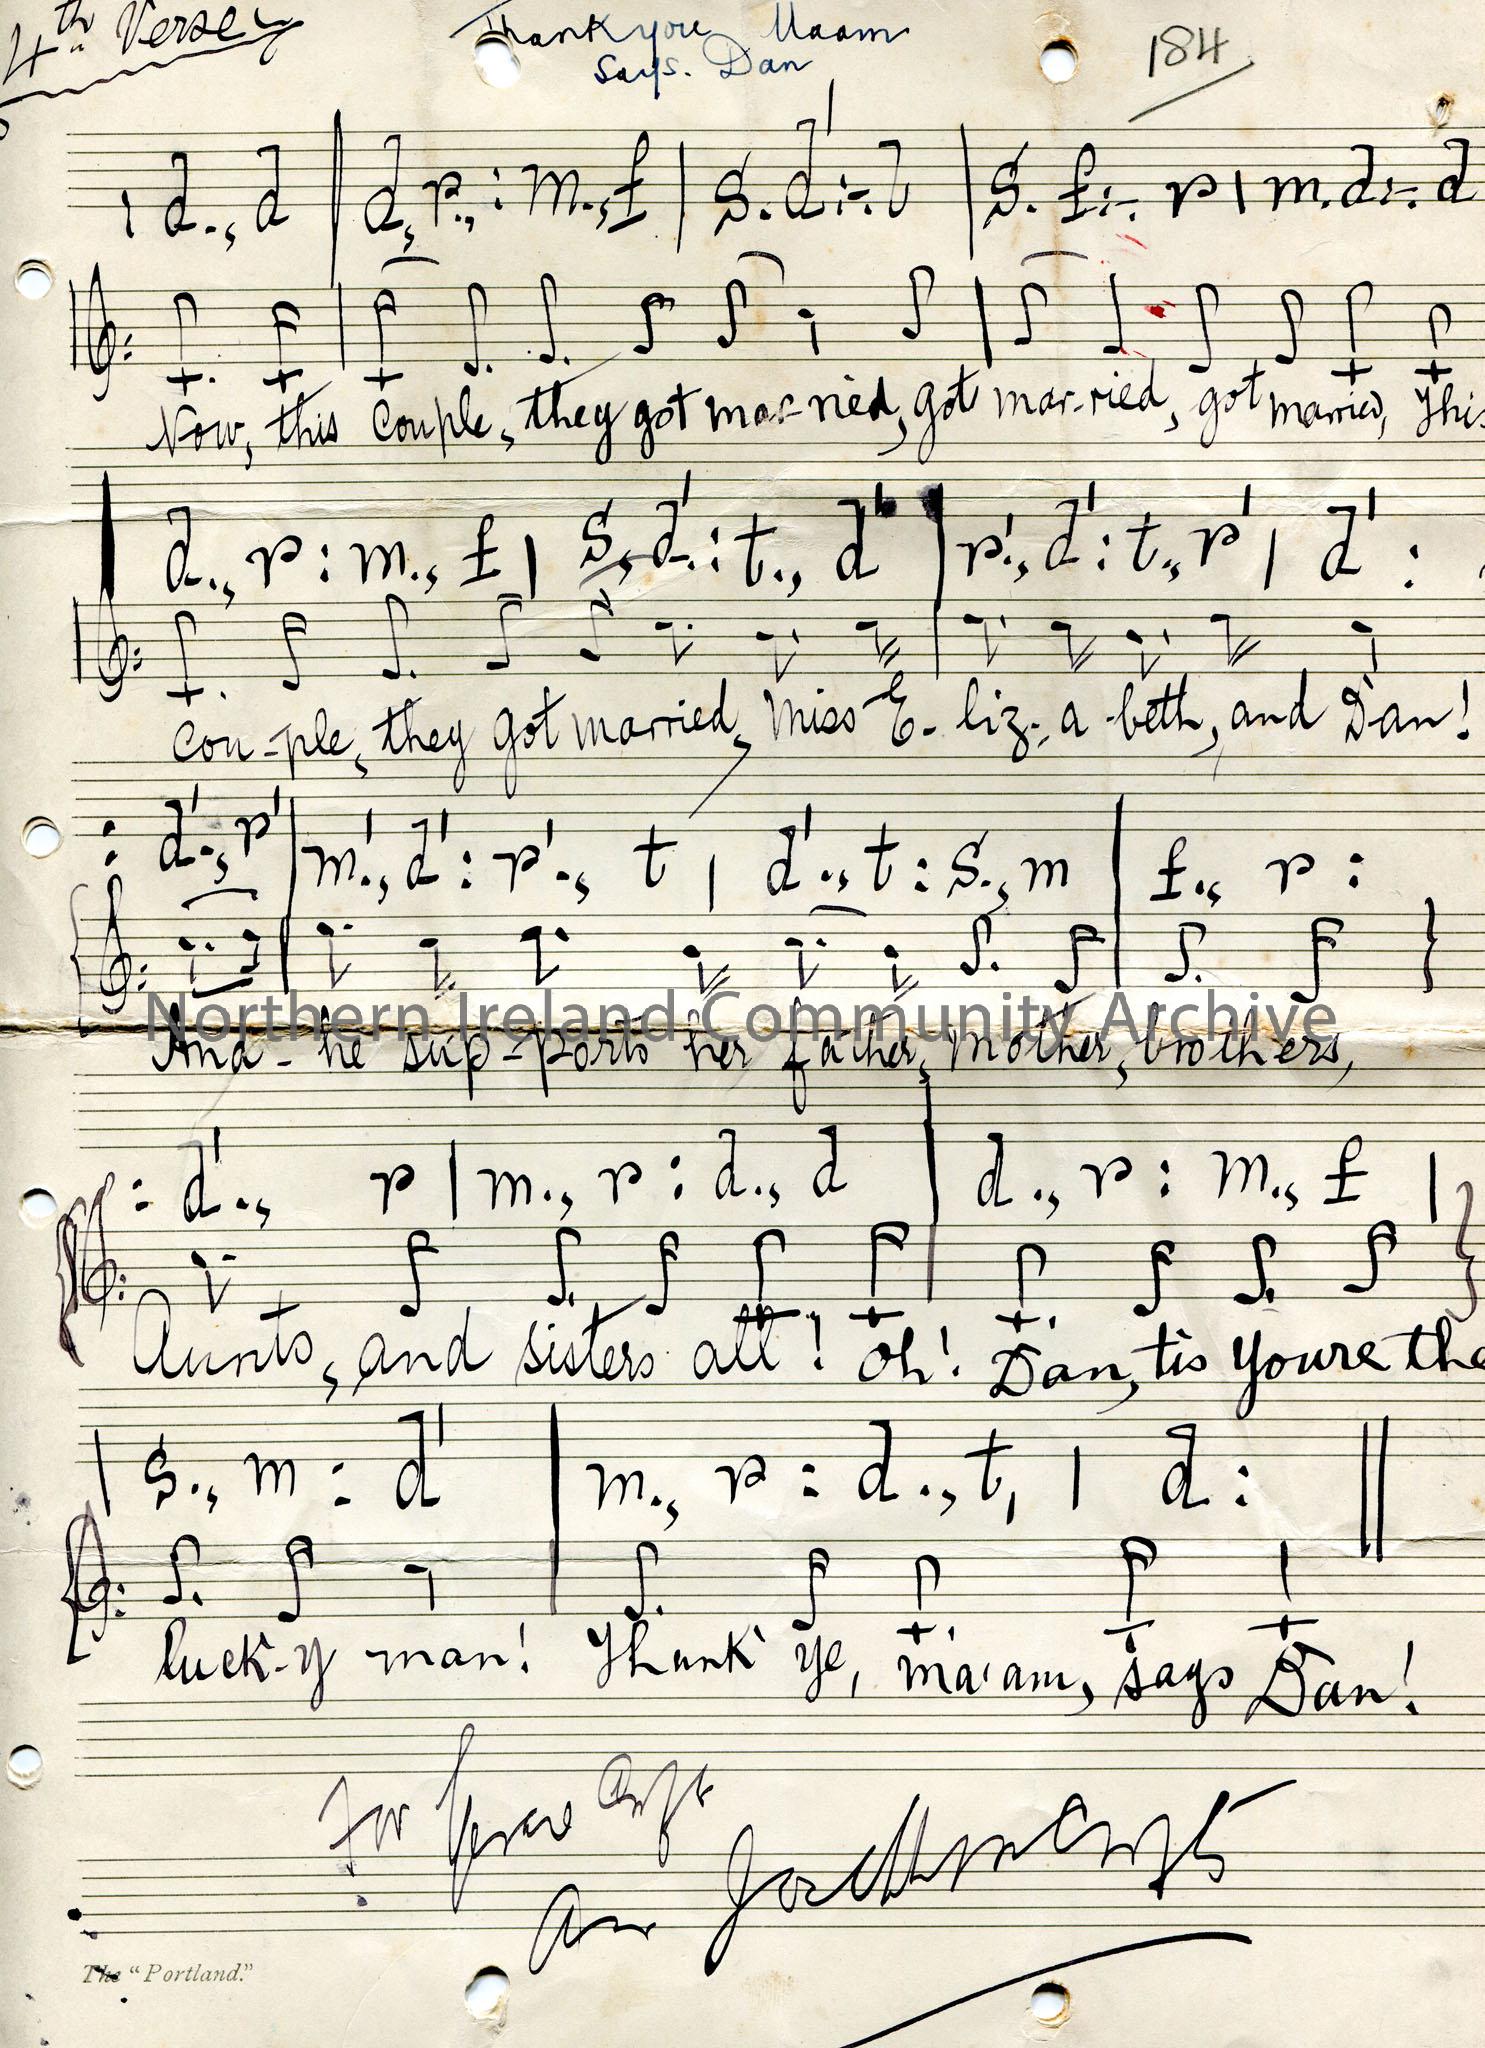 4th Verse
Thank you Maam
says. Dan
184
d., d | d, r., : m., f | s. d' :-. t | s. f :-. r | m. d :-. d
Now, this couple, they got mar-ried, got mar-ried, got married, This
d., r : m., f | s., d'. : t., d' | r'., d' : t., r' | d' :
cou-ple, they got married, Miss E-liz-a-beth, and Dan!
: d'., r' | m'., d' : r'., t | d'., t : s., m | f., r :
And-he sup-ports her father, mother, brothers,
: d'., r | m., r : d., d | d., r : m., f |
Aunts, and sisters all! Oh! Dan, tis youre the
| s., m : d' | m., r : d., t, | d : ||
luck-y man! Thank ye, ma'am, says Dan!
for
The "Portland."
Northern Ireland Community Archive